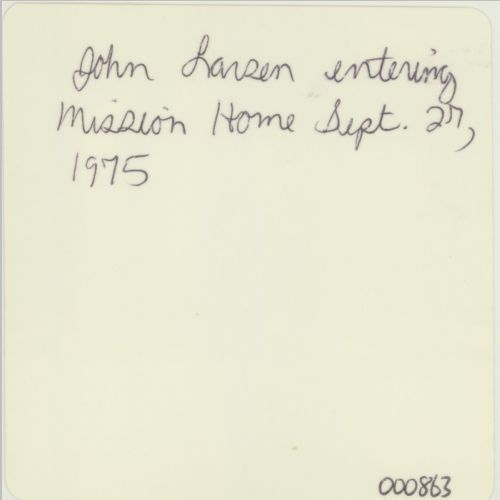 John Larsen entering
Mission Home Sept. 27,
1975
000863